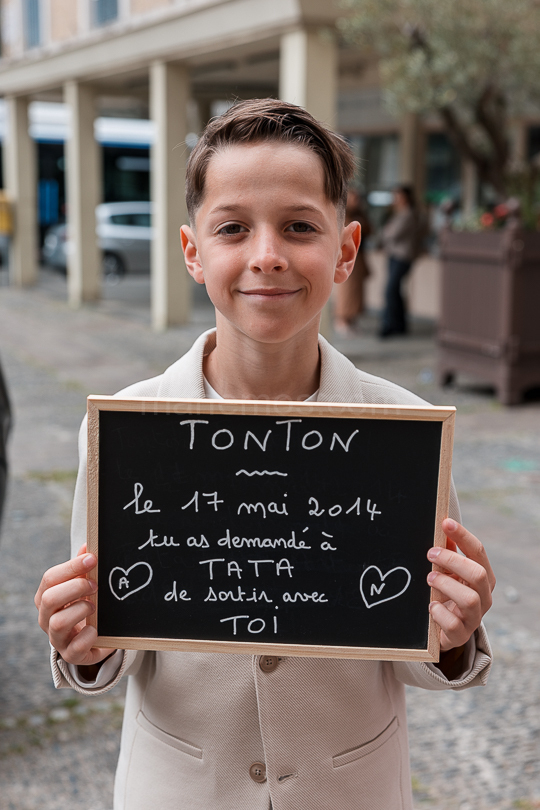 TONTON
le 17 mai 2014
tu as demandé à
TATA
A
de sortir avec
N
TOI